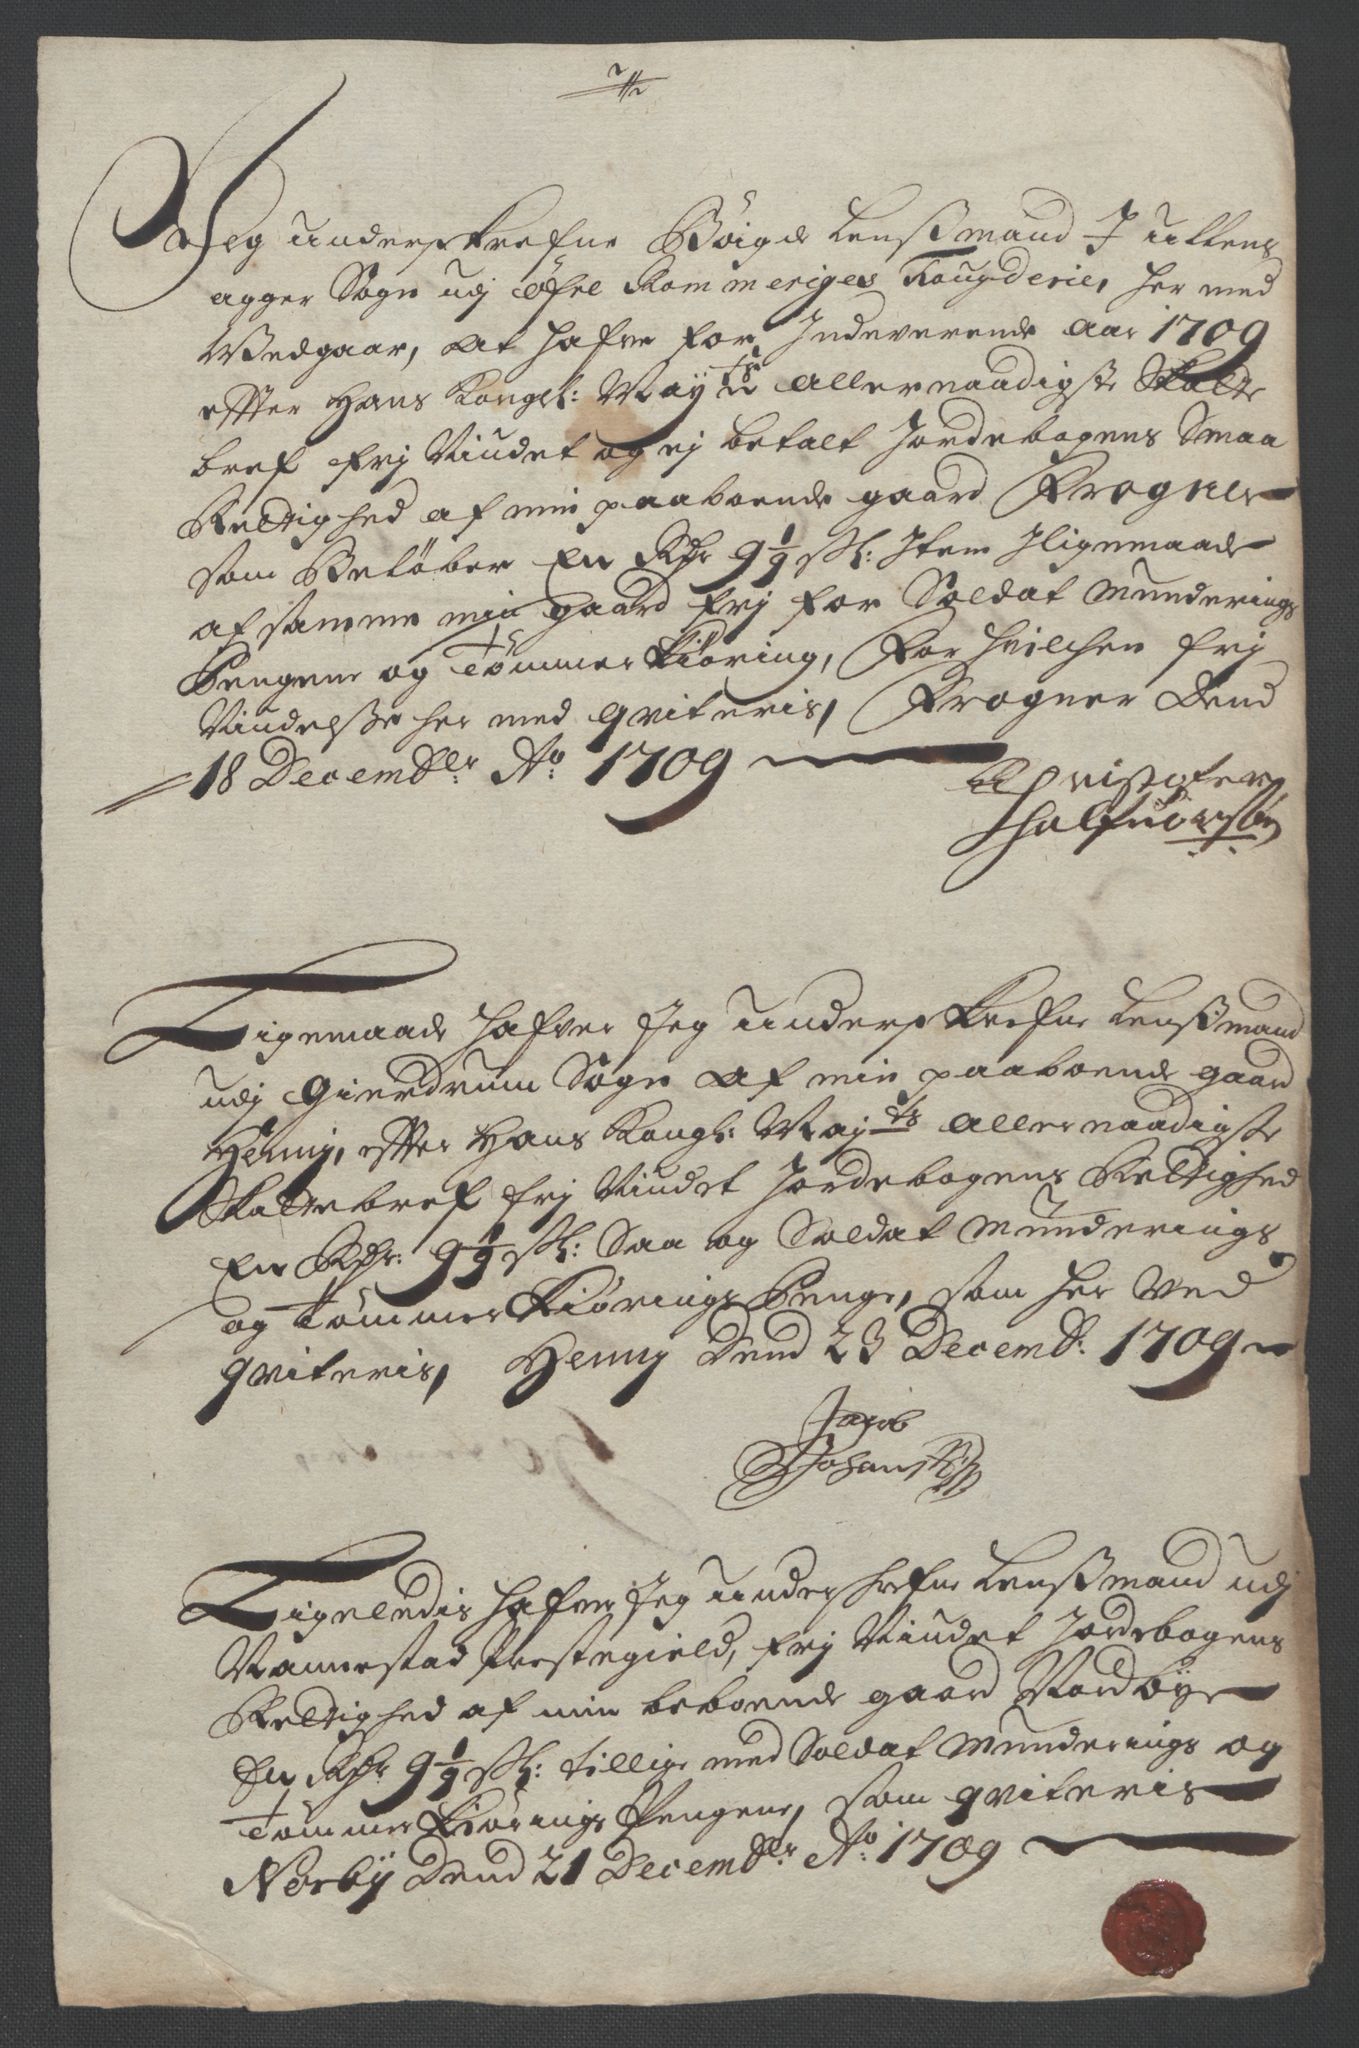 Jeg underskrefne Böigde Lensßmand J Ullens
agger Sogn udj Öfre Rommeriges Fougderie, her med
Vedgaar, at hafve for Indeverende Aar 1709
effter Hans Kongel: Maÿ:ts allernaadigste Skatte
bref frj Niudet og ej betalt Jordebogens Smaa
Rettighed af min paaboende gaard Frogner
som Beløber En Rdr 9 1/9 sk: Item Iligemaade
af samme min gaard frj for Soldat Munderings
Pengene og Tömmer Kiöring, For hvilchen frj
Niudelsse her med qviteris, Frogner Dend
18 Decembr Ao 1709
Christofer
Halfuorsøn
Ligemaade hafver Jeg underskrefne Lensßmand
udj Gierdrum Sogn af min paaboende gaard
Hennj, effter Hans Kongl: Maj:ts allernaadigste
Skattebref frj Niudet Jordebogens Rettighed
En Rdr: 9 1/9 sk: Saa og Soldat Munderings
og Tömmer Kiörings Penge, som her ved
qviteris, Hennj Dend 23 Decemb: 1709
Jacob
Johans
Ligeledis hafver Jeg underskrefne Lensßmand udj
Nannestad Prestegield, frj Niudet Jordebogens
Rettighed af min beboende gaard Nordbÿe
En Rdr 9 1/9 sk: tillige med Soldat Munderings og
Tömmer Kiörings Pengene, som qviteris
Norbÿ Dend 21 Decembr Ao 1709